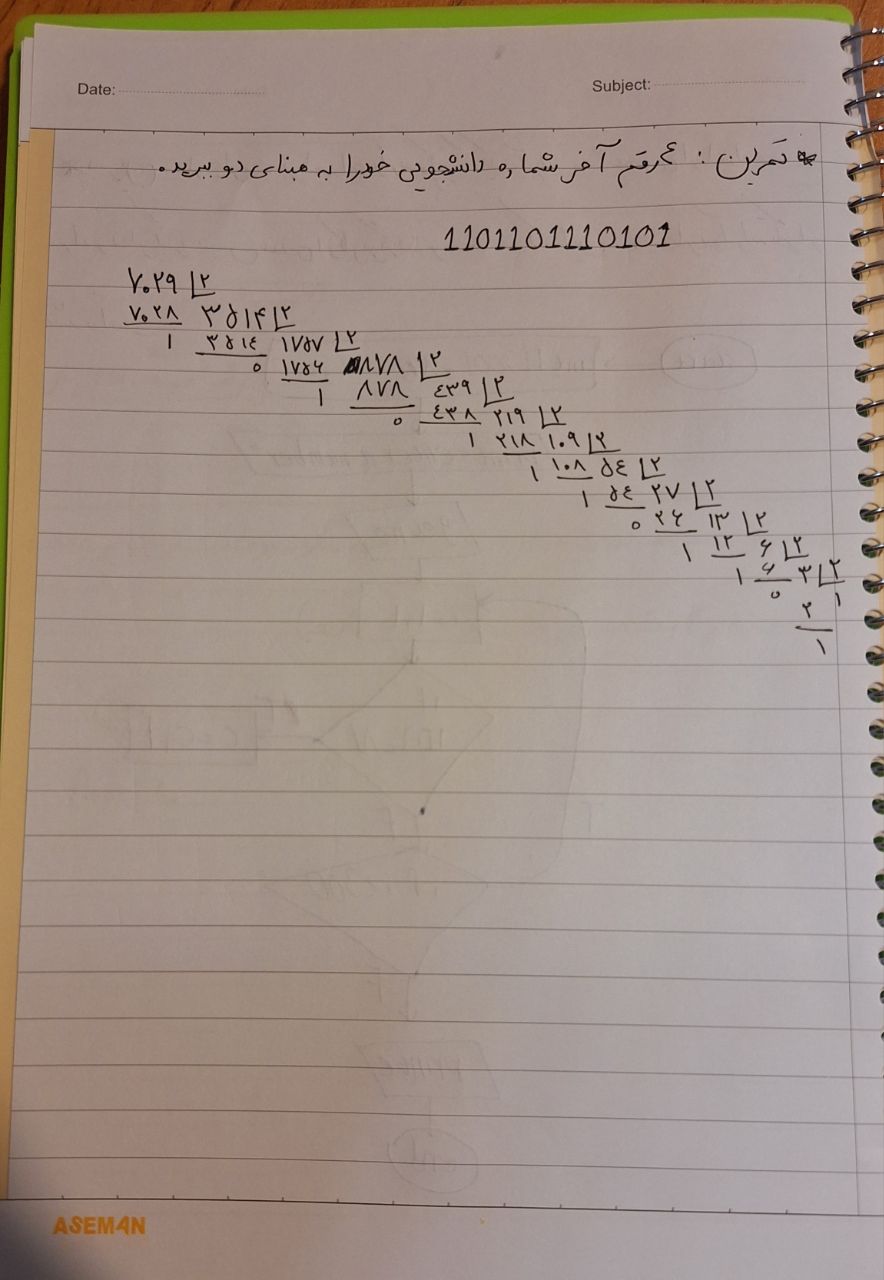 Date: Subject:
* تمرین : ۴ رقم آخر شماره دانشجویی خود را به مبنای دو ببرید.
1101101110101
۷۰۲۹ ۲
۷۰۲۸ ۳۵۱۴ ۲
۱ ۳۵۱۴ ۱۷۵۷ ۲
۰ ۱۷۵۶ ۸۷۸ ۲
۱ ۸۷۸ ۴۳۹ ۲
۰ ۴۳۸ ۲۱۹ ۲
۱ ۲۱۸ ۱۰۹ ۲
۱ ۱۰۸ ۵۴ ۲
۱ ۵۴ ۲۷ ۲
۰ ۲۶ ۱۳ ۲
۱ ۱۲ ۶ ۲
۱ ۶ ۳ ۲
۰ ۱
۲
۱
ASEMAN